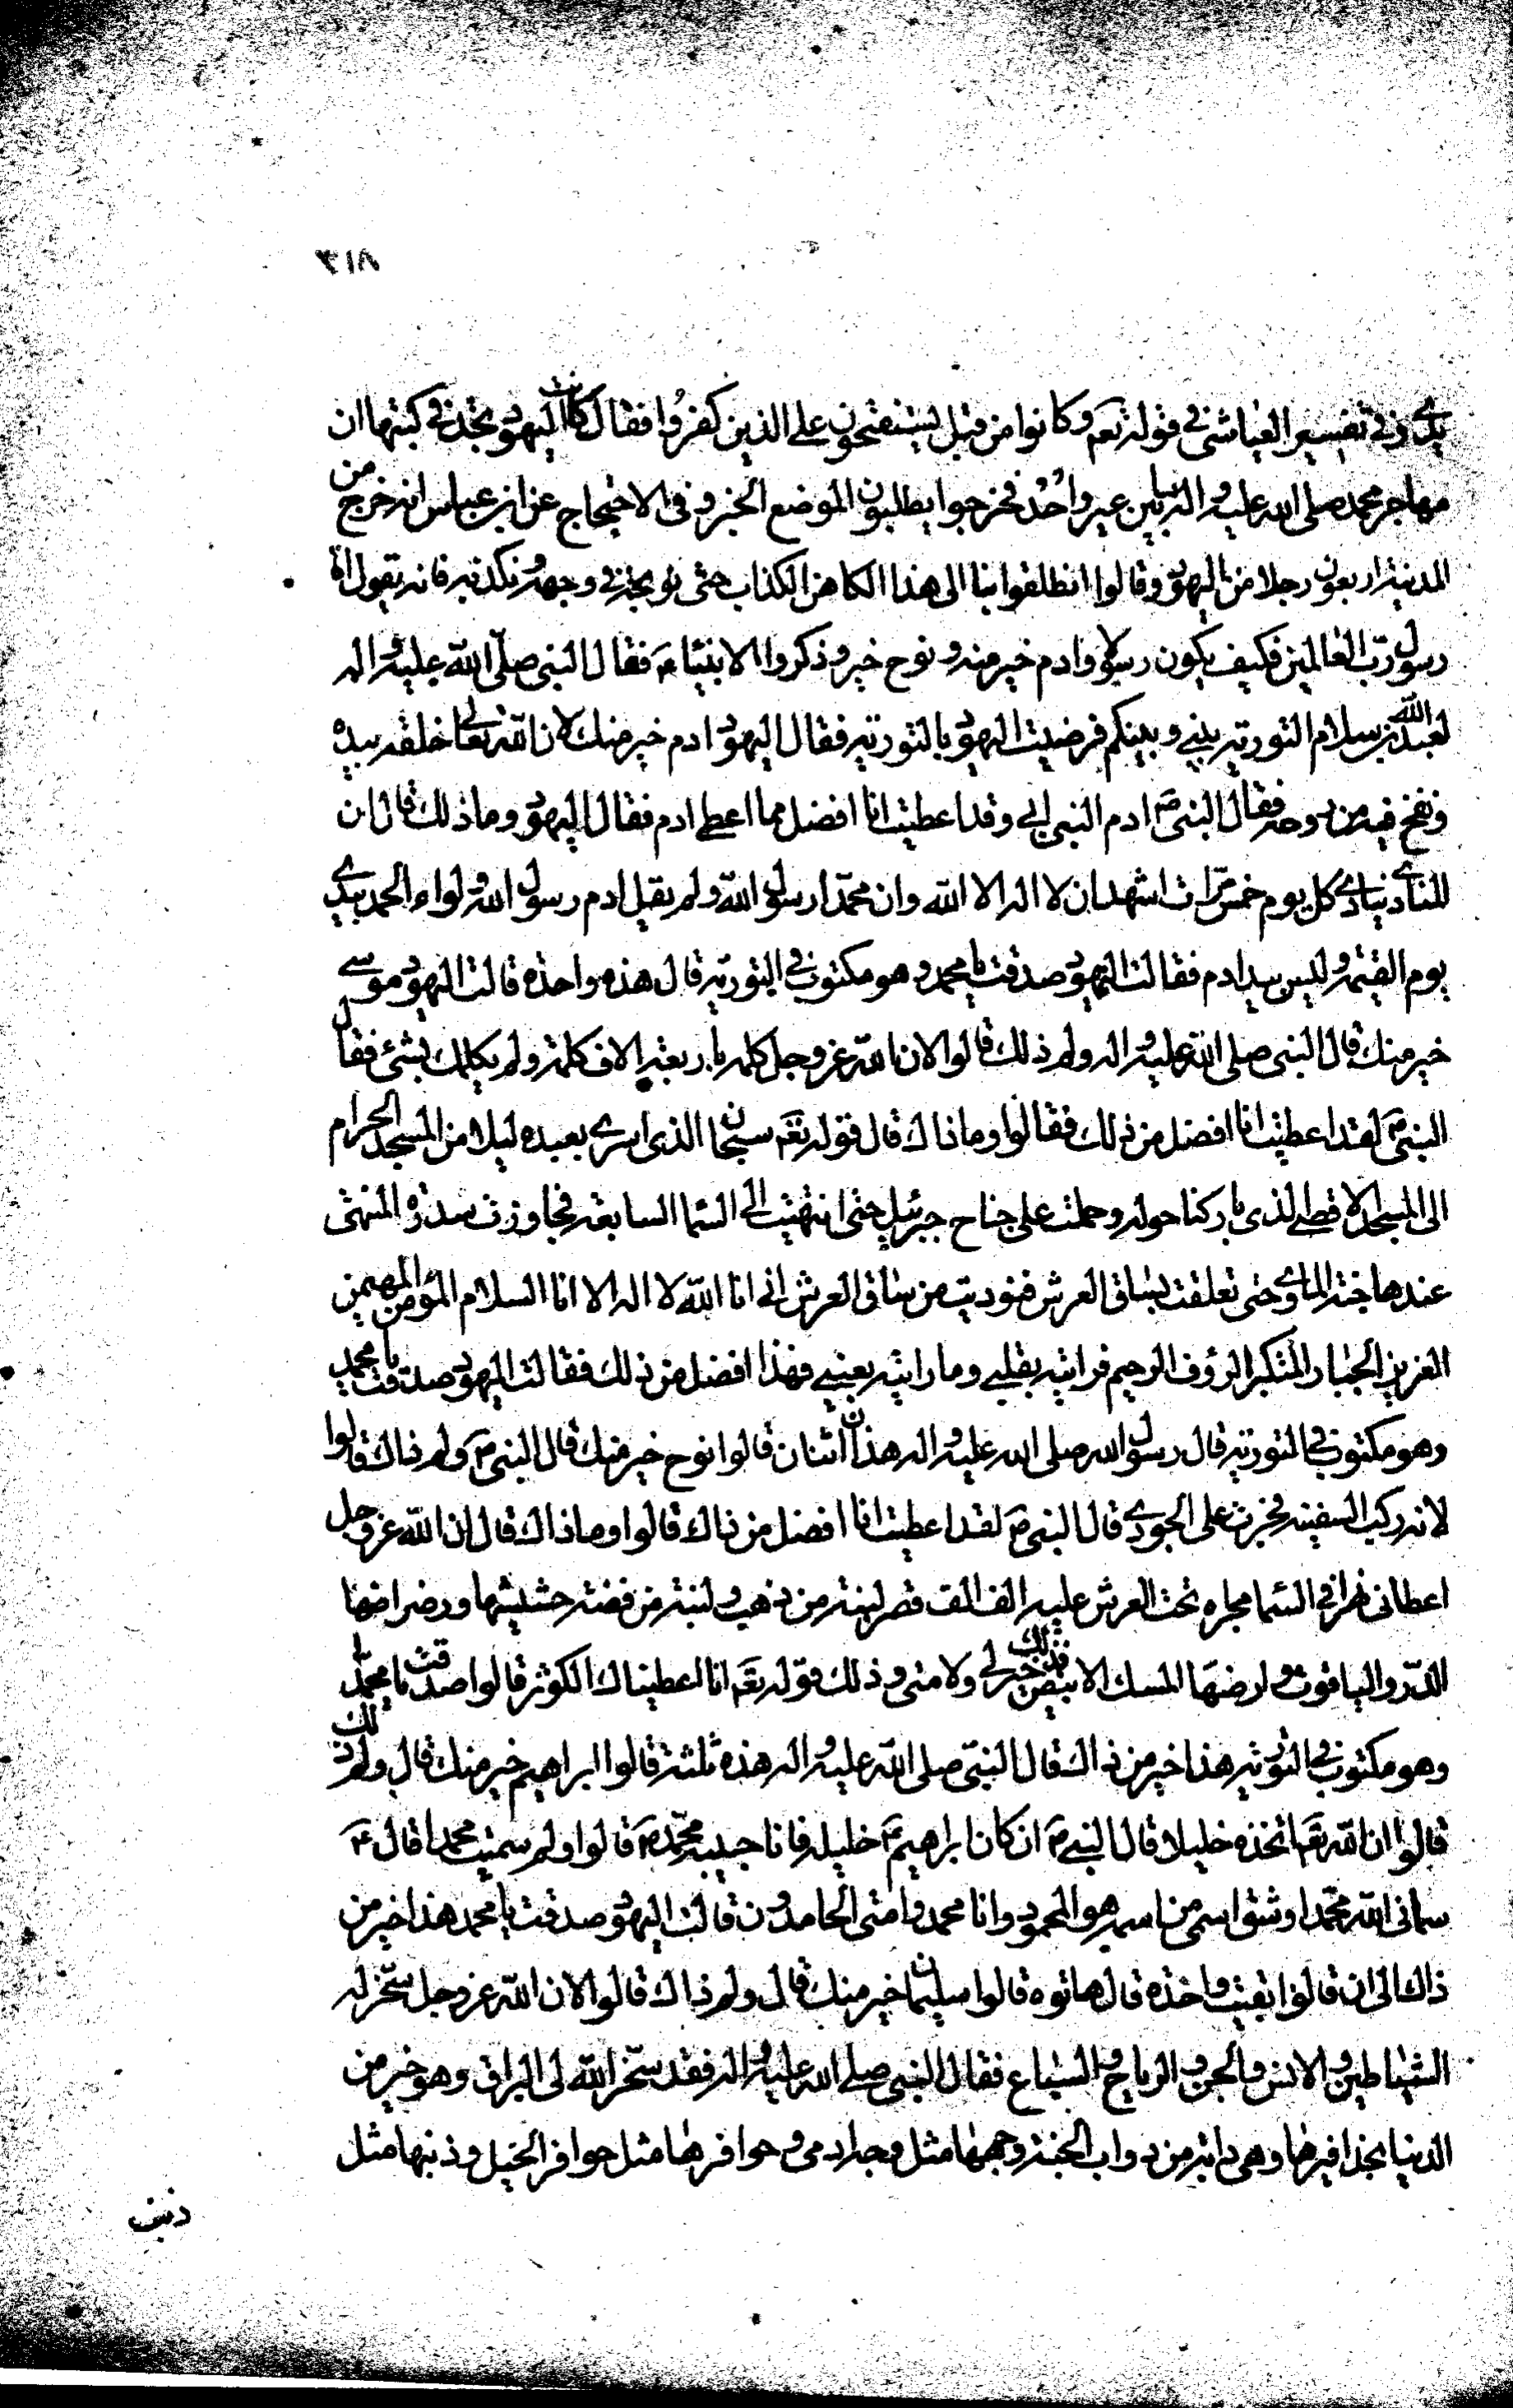 ٣١٨
يدي وفي تفسير العياشي في قوله تعم وكانوا من قبل يستفتحون على الذين كفروا فقال كانت اليهود تجد في كتبها ان
مهاجر محمد صلى الله عليه واله ما بين عير واحُد فخرجوا يطلبون الموضع الخبر وفى الاحتجاج عن ابن عباس انه خرج من
المدينة اربعون رجلا من اليهود وقالوا انطلقوا بنا الى هذا الكاهن الكذاب حتى نوبخه في وجهه ونكذبه فانه يقول انا
رسول رب العالمين فكيف يكون رسولا وادم خير منه ونوح خير وذكروا الانبياء ع فقال النبى صلى الله عليه واله
لعبد الله بن سلام التورية بيني وبينكم فرضيت اليهود بالتورية فقال اليهود ادم خير منك لان الله تعالى خلقه بيده
ونفخ فيه من روحه فقال النبى ص ادم النبى ابي وقد اعطيت انا افضل مما اعطي ادم فقال اليهود وما ذلك قال ان
المنادي ينادي كل يوم خمس مرات اشهد ان لا اله الا الله وان محمدا رسول الله ولم يقل ادم رسول الله ولواء الحمد بيدي
يوم القيمة وليس بيد ادم فقالت اليهود صدقت يا محمد وهو مكتوب في التورية قال هذه واحدة قالت اليهود موسى
خير منك قال النبى صلى الله عليه واله ولم ذلك قالوا لان الله عز وجل كلمه باربعة الاف كلمة ولم يكلمك بشئ فقال
النبى ص لقد اعطيت انا افضل من ذلك فقالوا وما ذاك قال قوله تعم سبحان الذى اسرى بعبده ليلا من المسجد الحرام
الى المسجد الاقصى الذى باركنا حوله وحملت على جناح جبرئيل حتى انتهيت الى السما السابعة فجاوزت سدرة المنتهى
عندها جنة الماوى حتى تعلقت بساق العرش فنوديت من ساق العرش اني انا الله لا اله الا انا السلام المؤمن المهيمن
العزيز الجبار المتكبر الرؤف الرحيم فرايته بقلبي وما رايته بعيني فهذا افضل من ذلك فقالت اليهود صدقت يا محمد
وهو مكتوب في التورية قال رسول الله صلى الله عليه واله هذان اثنان قالوا نوح خير منك قال النبى ص ولم ذاك قالوا
لانه ركب السفينة فجرت على الجودي قال النبى ص لقد اعطيت انا افضل من ذاك قالوا وما ذاك قال ان الله عز وجل
اعطانى نهرا في السما مجراه تحت العرش عليه الف الف قصر لبنة من ذهب ولبنة من فضة حشيشها ورضراضها
الدر والياقوت وارضها المسك الابيض فذلك خير لي ولامتى وذلك قوله تعم انا اعطيناك الكوثر قالوا صدقت يا محمد
وهو مكتوب في التورية هذا خير من ذاك قال النبى صلى الله عليه واله هذه ثلثة قالوا ابراهيم خير منك قال ولم ذلك
قالوا ان الله تعم اتخذه خليلا قال النبي ص ان كان ابراهيم ع خليله فانا حبيبه محمد ص قالوا ولم سميت محمدا قال ع
سمانى الله محمدا وشق اسمي من اسمه هو المحمود وانا محمد وامتى الحامدون قالت اليهود صدقت يا محمد هذا خير من
ذاك الى ان قالوا بقيت واحدة قال هاتوه قالوا سليمان خير منك قال ولم ذاك قالوا لان الله عز وجل سخر له
الشياطين والانس والجن والرياح والسباع فقال النبى صلى الله عليه واله فقد سخر الله لى البراق وهو خير من
الدنيا بحذافيرها وهى دابة من دواب الجنة وجهها مثل وجه ادمى وحوافرها مثل حوافر الخيل وذنبها مثل
ذنب